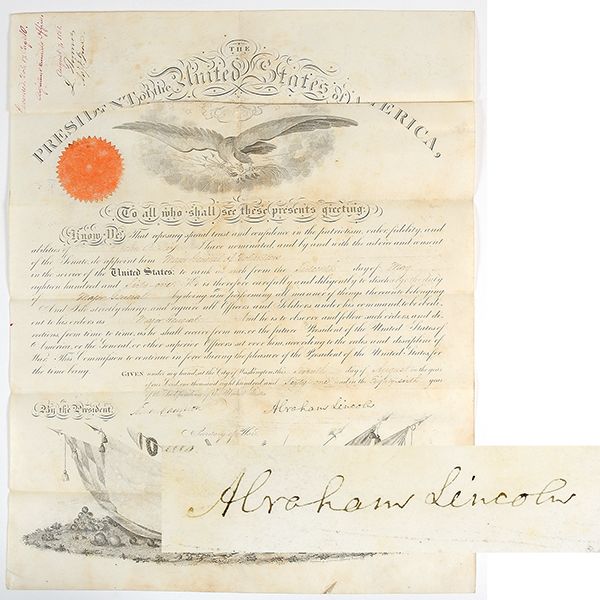 August 3, 1861
L. Thomas
THE
PRESIDENT of the United States of AMERICA,
To all who shall see these presents greeting:
Know Ye, That reposing special trust and confidence in the patriotism, valor, fidelity, and
abilities of I have nominated, and by and with the advice and consent
of the Senate, do appoint him Major General of Volunteers
in the service of the United States: to rank as such from the day of May
eighteen hundred and Sixty one. He is therefore carefully and diligently to discharge the duty
of Major General by doing and performing all manner of things thereunto belonging.
And I do strictly charge and require all Officers and Soldiers under his command to be obedi-
ent to his orders as Major General. And he is to observe and follow such orders, and di-
rections from time to time, as he shall receive from me, or the future President of the United States of
America, or the General or other superior Officers set over him, according to the rules and discipline of
War. This Commission to continue in force during the pleasure of the President of the United States, for
the time being.
GIVEN under my hand at the City of Washington, this day of August in the year
of our Lord one thousand eight hundred and Sixty one and in the Eighty sixth year
of the Independence of the United States.
By the President
Abraham Lincoln
Secretary of War
Abraham Lincoln